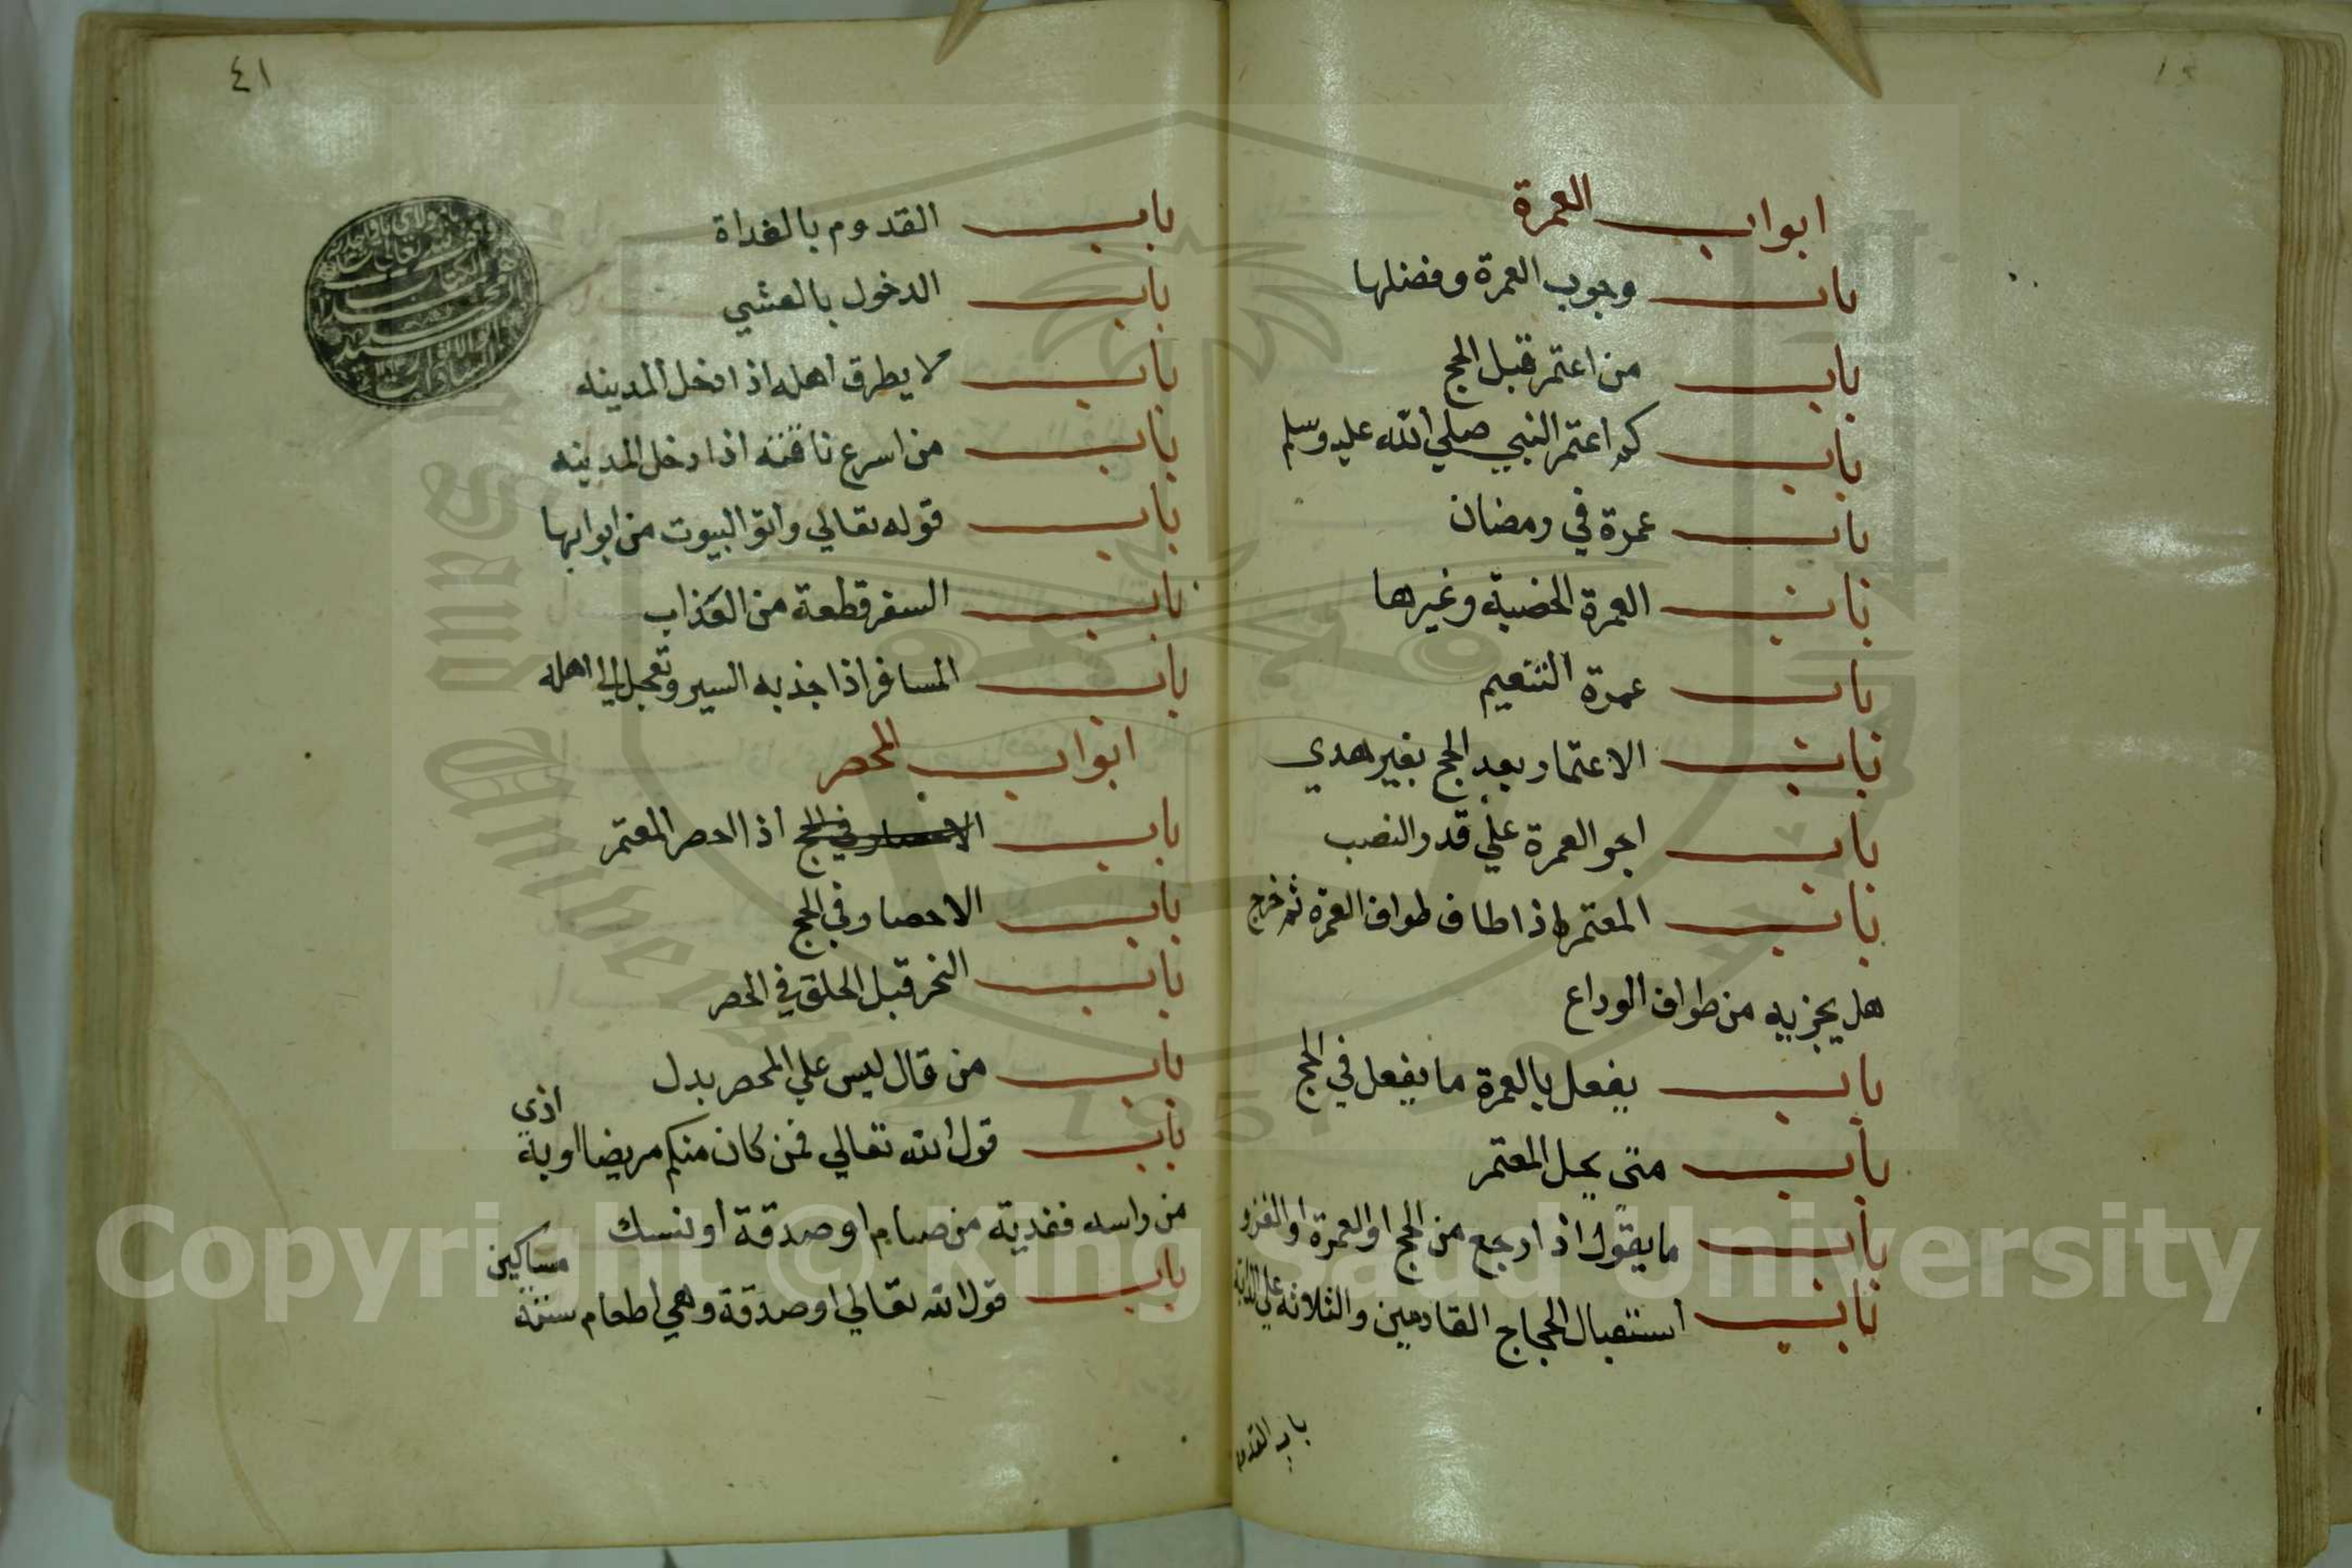 ابواب العمرة
باب وجوب العمرة وفضلها
باب من اعتمر قبل الحج
باب كم اعتمر النبي صلي الله عليه وسلم
باب عمرة في رمضان
باب العمرة الحصبة وغيرها
باب عمرة التنعيم
باب الاعتمار بعد الحج بغير هدي
باب اجر العمرة علي قدر النصب
باب المعتمر اذا طاف طواف العمرة ثم خرج
هل يجزيه من طواف الوداع
باب يفعل بالعمرة ما يفعل في الحج
باب متى يحل المعتمر
باب ما يقول اذا رجع من الحج او العمرة او الغزو
باب استقبال الحجاج القادمين والثلاثة علي الدابة
باب القدوم
٤١
باب القدوم بالغداة
باب الدخول بالعشي
باب لا يطرق اهله اذا دخل المدينه
باب من اسرع ناقته اذا دخل المدينه
باب قوله تعالي واتوا البيوت من ابوابها
باب السفر قطعة من العذاب
باب المسافر اذا جد به السير وتعجل الي اهله
ابواب المحصر
باب الاحصار في الحج اذا احصر المعتمر
باب الاحصار في الحج
باب النحر قبل الحلق في الحصر
باب من قال ليس علي المحصر بدل
باب قول الله تعالي فمن كان منكم مريضا او به اذي
من راسه ففدية من صيام او صدقة او نسك
باب قول الله تعالي او صدقة وهي اطعام ستة مساكين
Copyright © King Saud University
1957